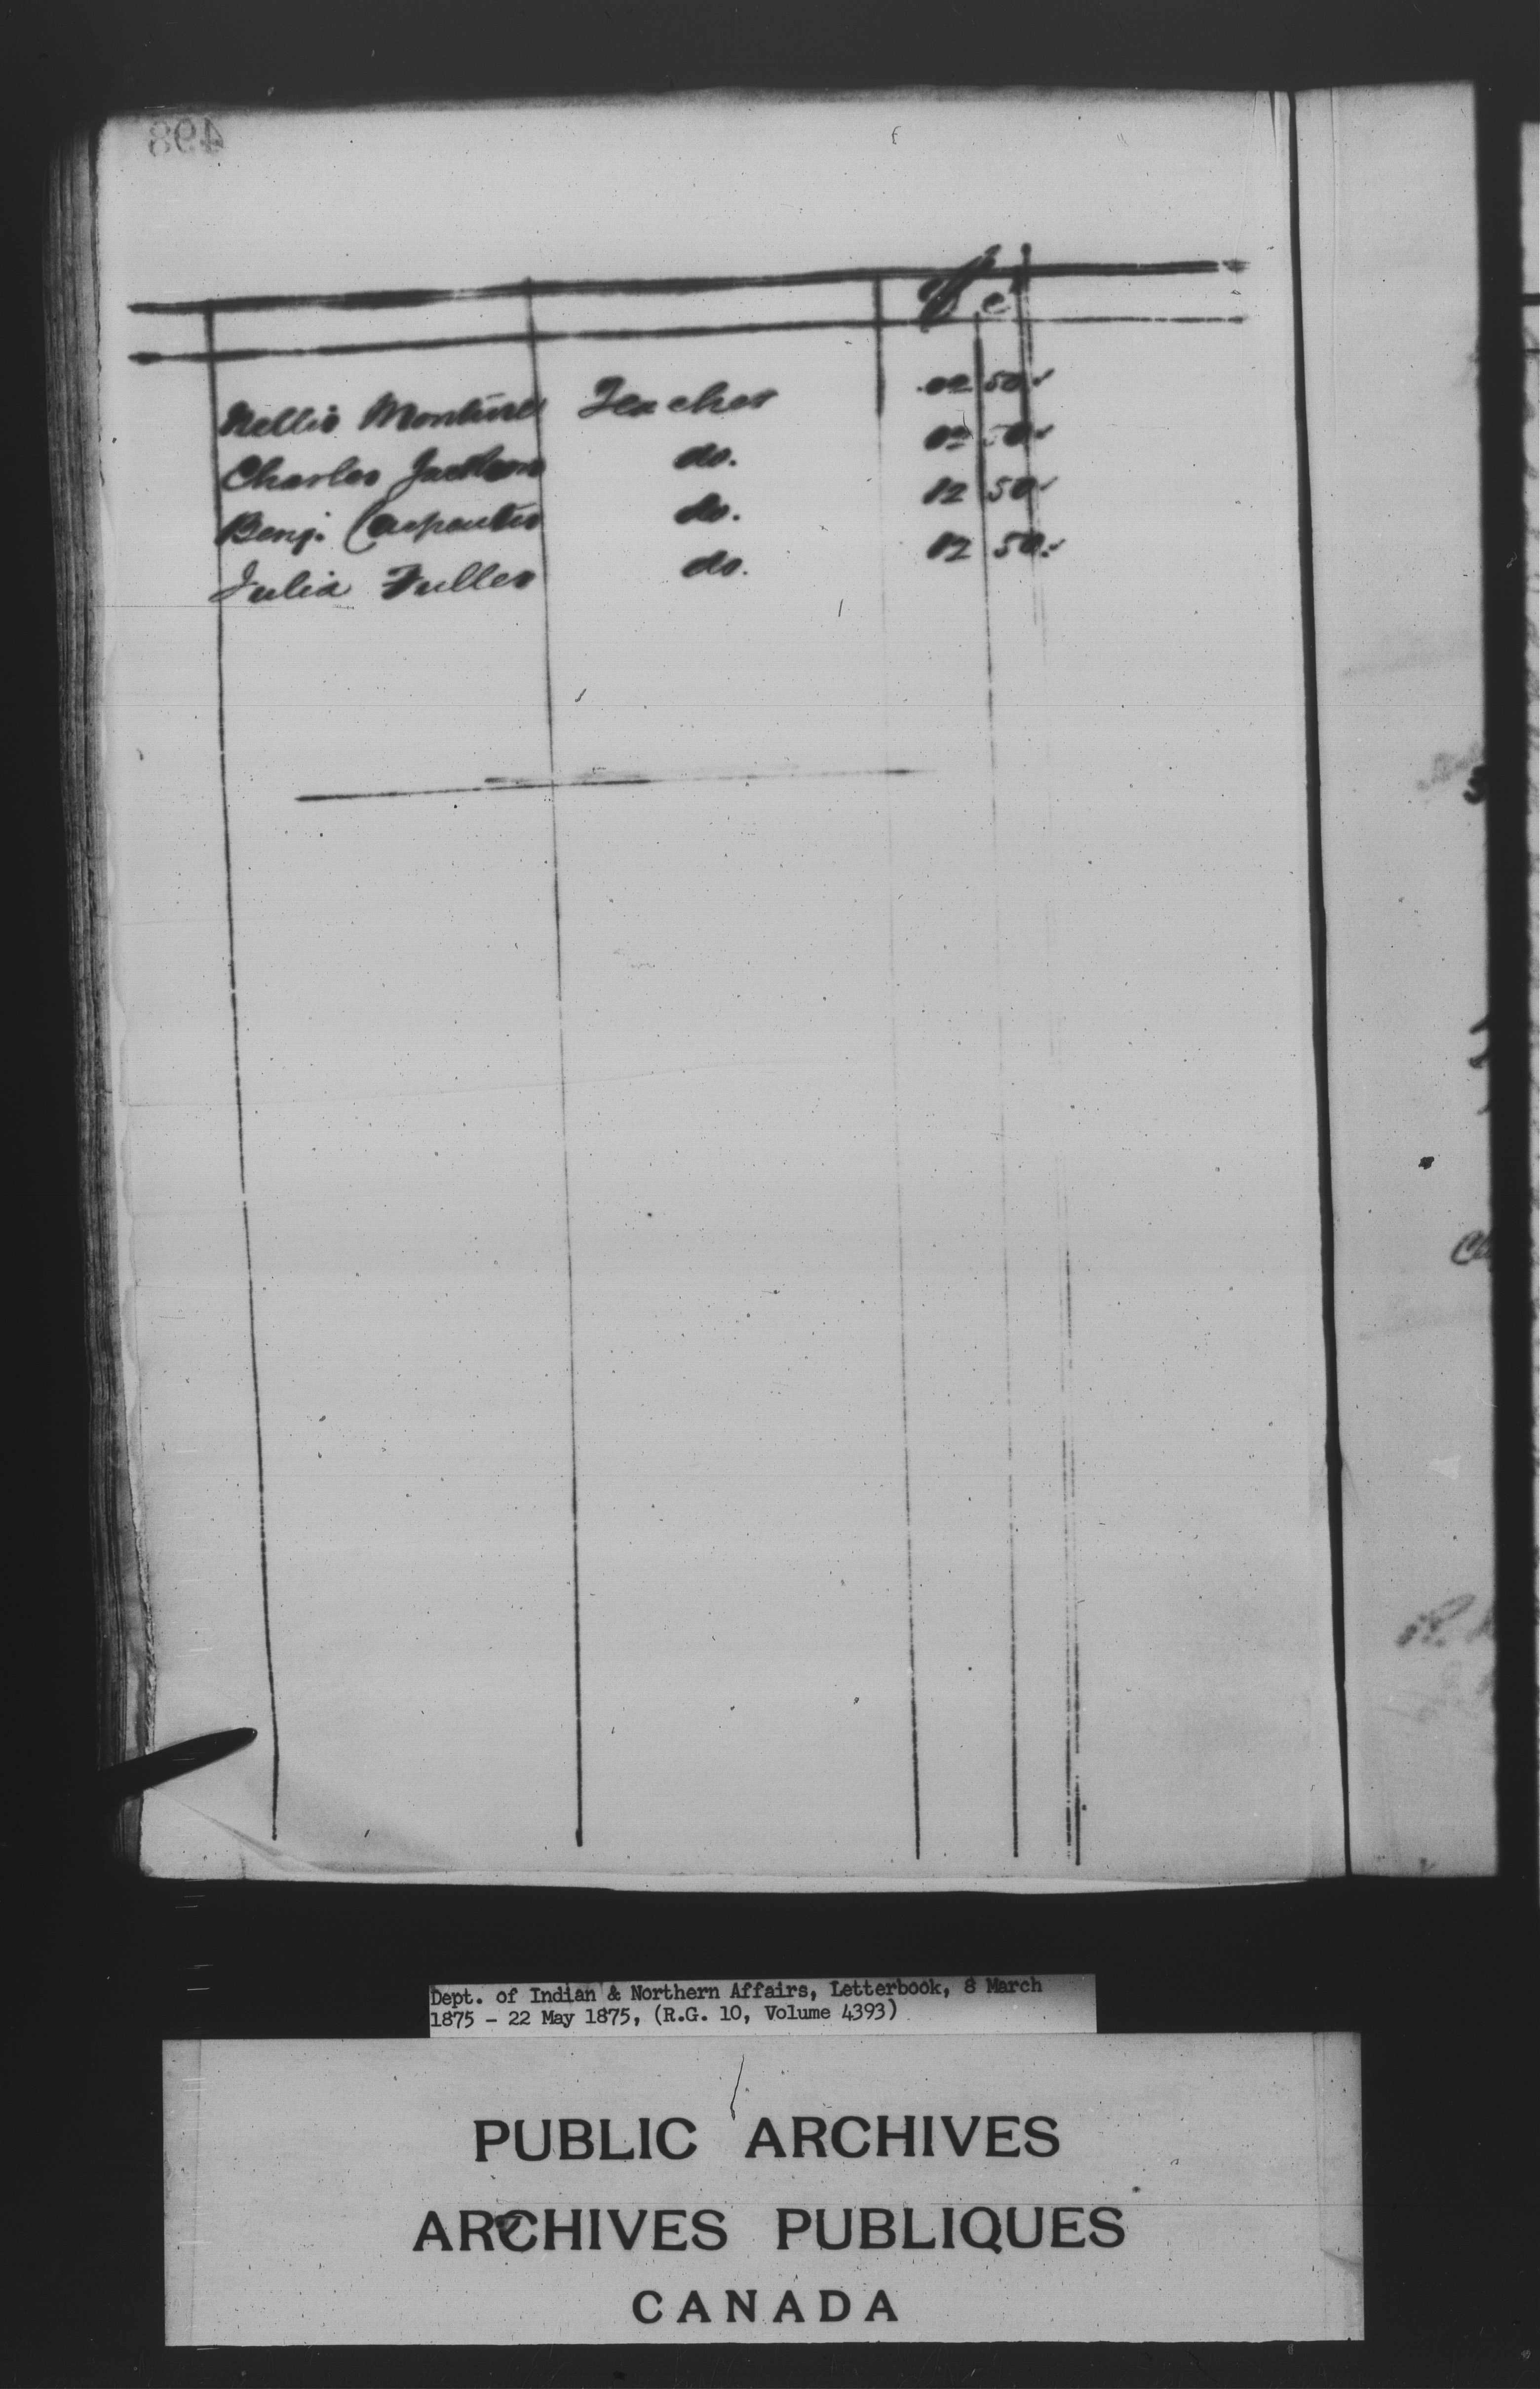 498
$ c
Nellis Monture Teacher 12 50
Charles Jackson do. 12 50
Benj. Carpenter do. 12 50
Julia Fuller do. 12 50
Dept. of Indian & Northern Affairs, Letterbook, 8 March
1875 - 22 May 1875, (R.G. 10, Volume 4393)
PUBLIC ARCHIVES
ARCHIVES PUBLIQUES
CANADA